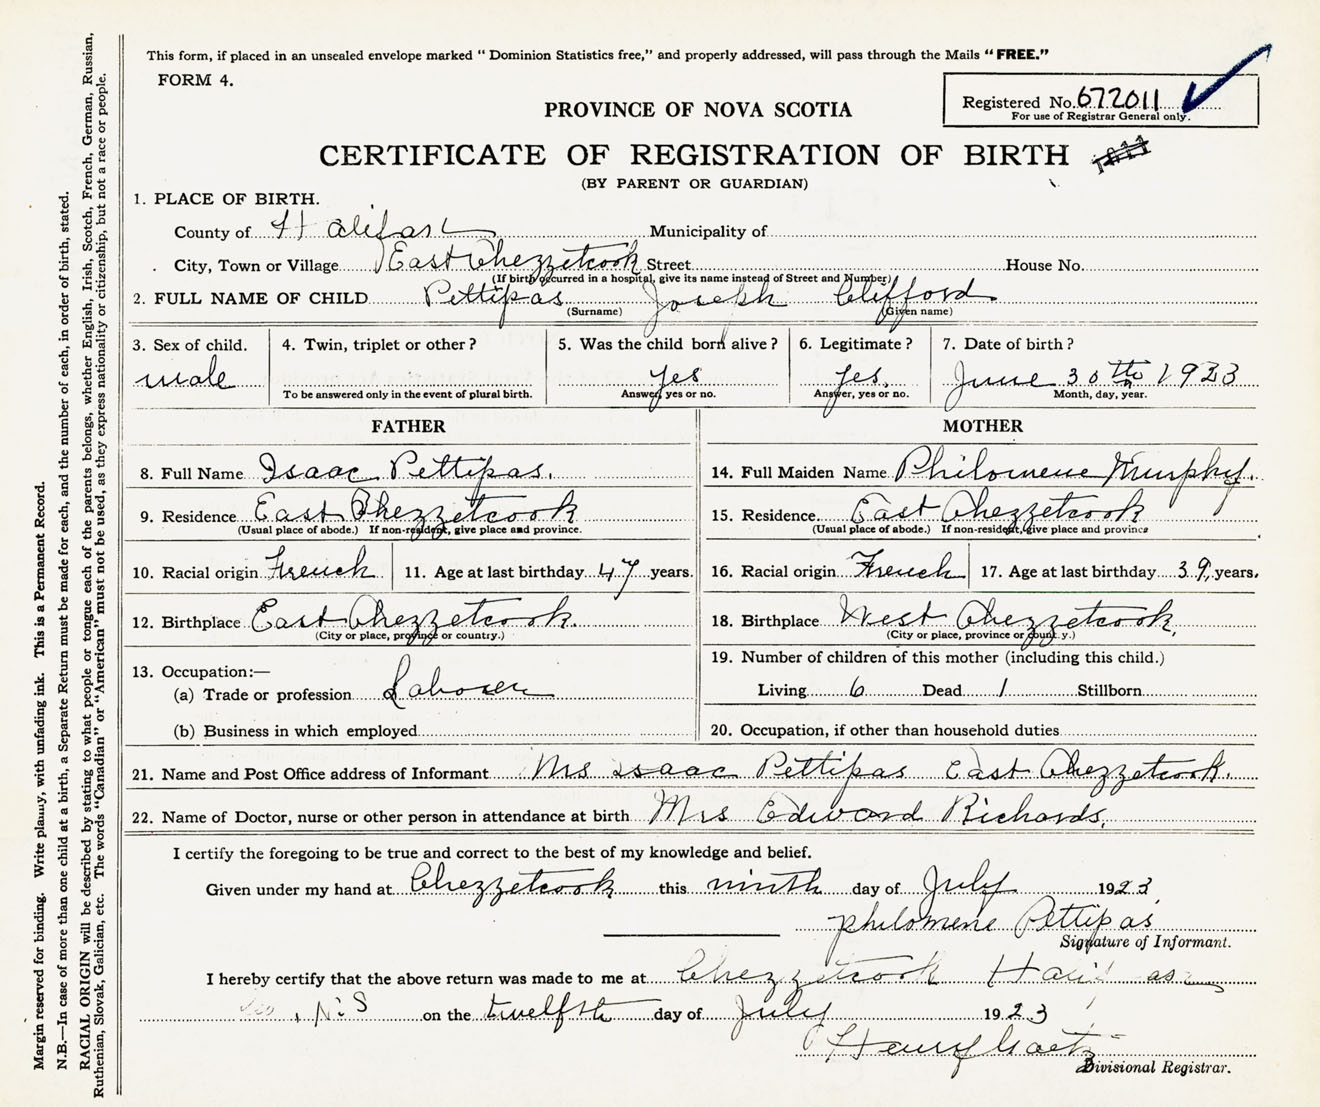 This form, if placed in an unsealed envelope marked " Dominion Statistics free," and properly addressed, will pass through the Mails "FREE."
FORM 4.
Registered No. 672011
For use of Registrar General only.
PROVINCE OF NOVA SCOTIA
CERTIFICATE OF REGISTRATION OF BIRTH
(BY PARENT OR GUARDIAN)
1. PLACE OF BIRTH.
County of Halifax Municipality of
City, Town or Village East Chezzetcook Street House No.
(If birth occurred in a hospital, give its name instead of Street and Number)
2. FULL NAME OF CHILD Pettipas Joseph Clifford
(Surname) (Given name)
3. Sex of child. 4. Twin, triplet or other? 5. Was the child born alive? 6. Legitimate? 7. Date of birth?
male yes yes, June 30th 1923
To be answered only in the event of plural birth. Answer, yes or no. Answer, yes or no. Month, day, year.
FATHER MOTHER
8. Full Name Isaac Pettipas. 14. Full Maiden Name Philomene Murphy.
9. Residence East Chezzetcook 15. Residence East Chezzetcook
(Usual place of abode.) If non-resident, give place and province. (Usual place of abode.) If non-resident, give place and province
10. Racial origin French 11. Age at last birthday 47 years. 16. Racial origin French 17. Age at last birthday 39, years.
12. Birthplace East Chezzetcook. 18. Birthplace West Chezzetcook,
(City or place, province or country.) (City or place, province or country.)
13. Occupation:— 19. Number of children of this mother (including this child.)
(a) Trade or profession Laborer Living 6 Dead 1 Stillborn
(b) Business in which employed 20. Occupation, if other than household duties
21. Name and Post Office address of Informant Mrs Isaac Pettipas East Chezzetcook.
22. Name of Doctor, nurse or other person in attendance at birth Mrs Edward Richards,
I certify the foregoing to be true and correct to the best of my knowledge and belief.
Given under my hand at Chezzetcook this ninth day of July 1923
philomene Pettipas
Signature of Informant.
I hereby certify that the above return was made to me at Chezzetcook Halifax
N.S on the twelfth day of July 1923
Henry Gaetz
Divisional Registrar.
Margin reserved for binding. Write plainly, with unfading ink. This is a Permanent Record.
N.B.—In case of more than one child at a birth, a Separate Return must be made for each, and the number of each, in order of birth, stated.
RACIAL ORIGIN will be described by stating to what people or tongue each of the parents belongs, whether English, Irish, Scotch, French, German, Russian,
Ruthenian, Slovak, Galician, etc. The words "Canadian" or "American" must not be used, as they express nationality or citizenship, but not a race or people.